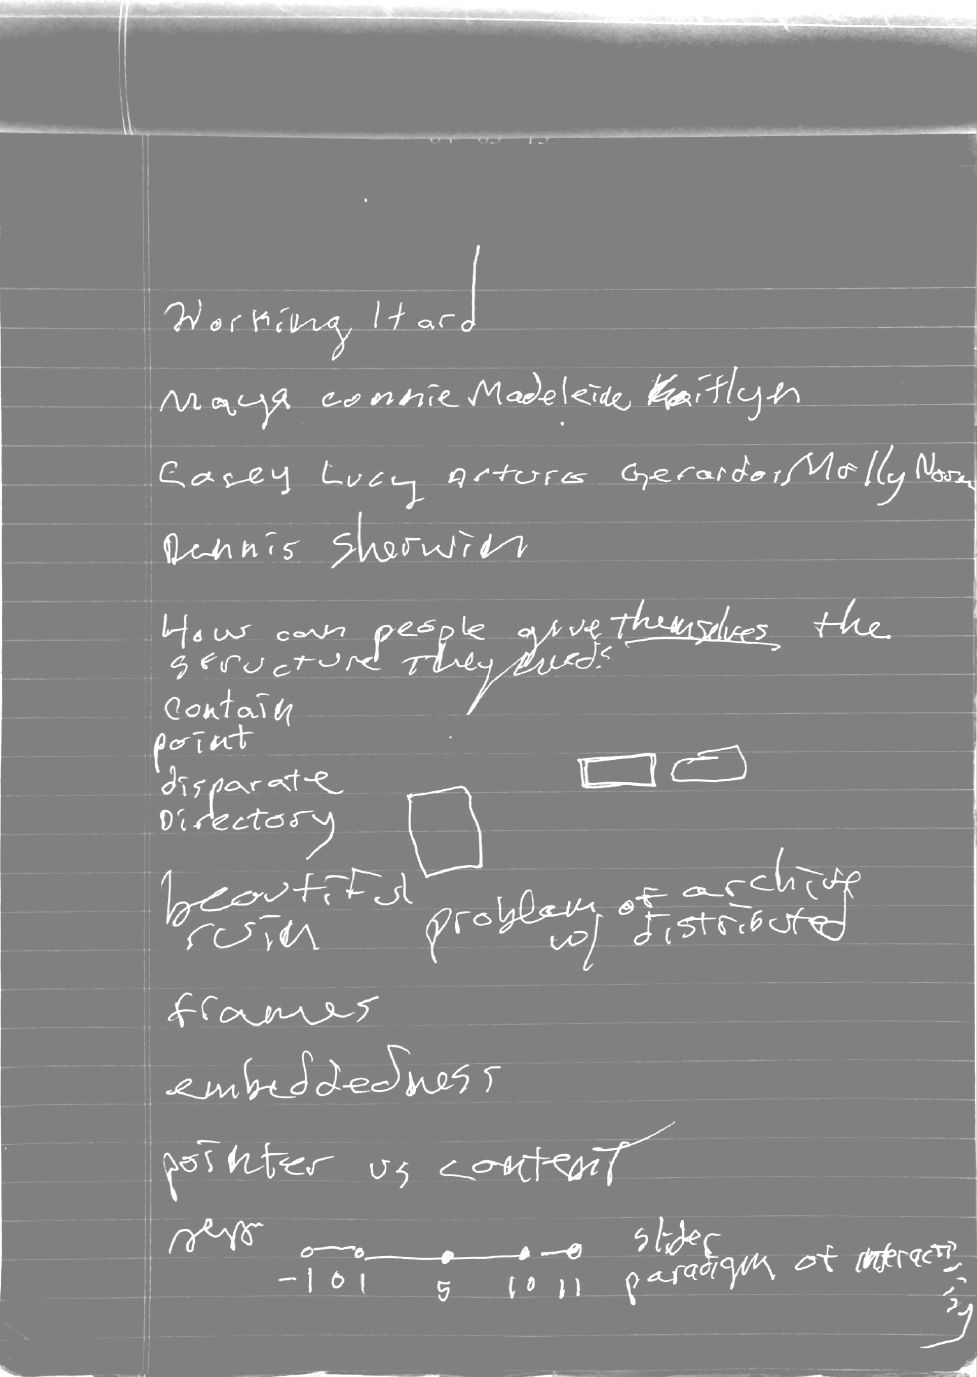 Working Hard
Maya Connie Madeleine Kaitlyn
Casey Lucy Arturo Gerardo Molly Noon
Dennis Sherwin
How can people give themselves the
structure they need?
contain
point
disparate
Directory
beautiful
ruin
problem of archive
w/ distributed
frames
embeddedness
pointer vs content
slider
-1 0 1 5 10 11
paradigm of interactivity